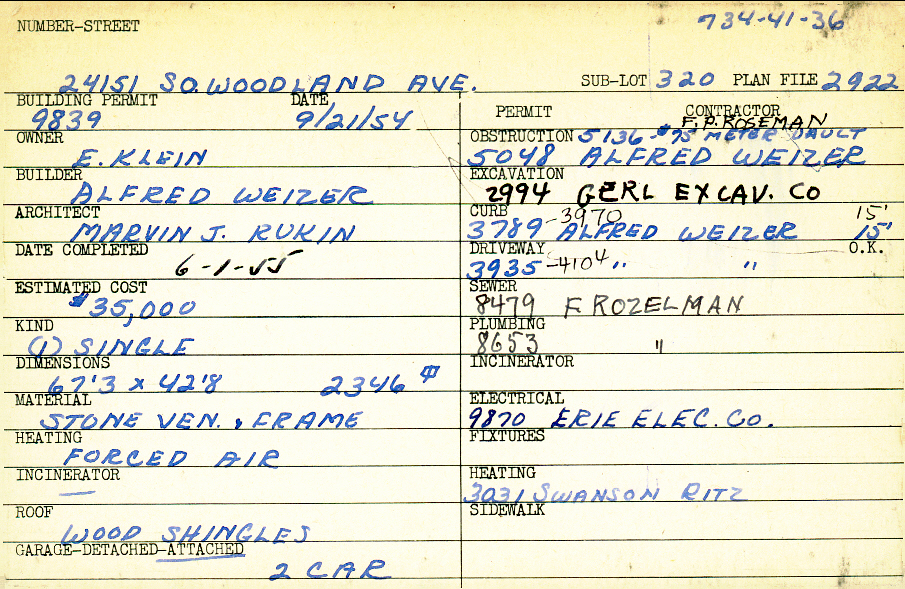 NUMBER-STREET 734-41-36
24151 SO. WOODLAND AVE. SUB-LOT 320 PLAN FILE 2922
BUILDING PERMIT DATE
9839 9/21/54
OWNER
E. KLEIN
BUILDER
ALFRED WEIZER
ARCHITECT
MARVIN J. RUKIN
DATE COMPLETED
6-1-55
ESTIMATED COST
$35,000
KIND
(1) SINGLE
DIMENSIONS
67'3 x 42'8 2346
MATERIAL
STONE VEN. & FRAME
HEATING
FORCED AIR
INCINERATOR
—
ROOF
WOOD SHINGLES
GARAGE-DETACHED-ATTACHED
2 CAR
PERMIT CONTRACTOR
F. P. ROSEMAN
OBSTRUCTION 5136-$75 METER VAULT
5048 ALFRED WEIZER
EXCAVATION
2994 GERL EXCAV. CO
CURB -3970 15'
3789 ALFRED WEIZER 15'
DRIVEWAY O.K.
3935-4104 " "
SEWER
8479 F. ROZELMAN
PLUMBING
8653 "
INCINERATOR
ELECTRICAL
9870 ERIE ELEC. CO.
FIXTURES
HEATING
3031 SWANSON RITZ
SIDEWALK